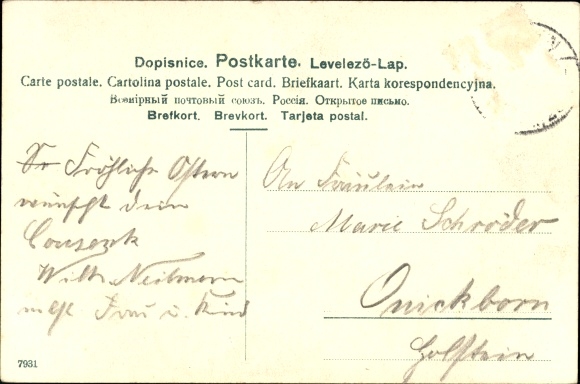 Dopisnice. Postkarte. Levelező-Lap.
Carte postale. Cartolina postale. Post card. Briefkaart. Karta korespondencyjna.
Всемірный почтовый союзъ. Россія. Открытое письмо.
Brefkort. Brevkort. Tarjeta postal.
Fröhliche Ostern
wünscht dein
Wilh.
Frau u. Kind
An Fräulein
Marie Schröder
Quickborn
Holstein
7931